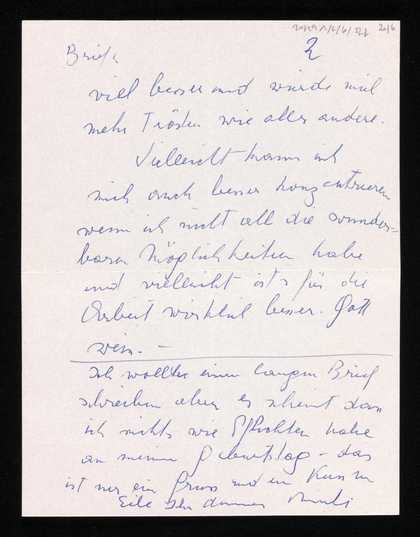 2
Brief
viel besser und würde viel
mehr Trösten wie alles andere.
Vielleicht kann ich
mich auch besser konzentrieren
wenn ich nicht all die wunder-
baren Möglichkeiten habe
und vielleicht ist's für die
Arbeit wirklich besser. Gott
weis. –
Ich wollte einen langen Brief
schreiben aber es scheint dass
ich nichts wie Pflichten habe
an meinem Geburtstag – das
ist nur ein Gruss und ein Kuss in
Eile